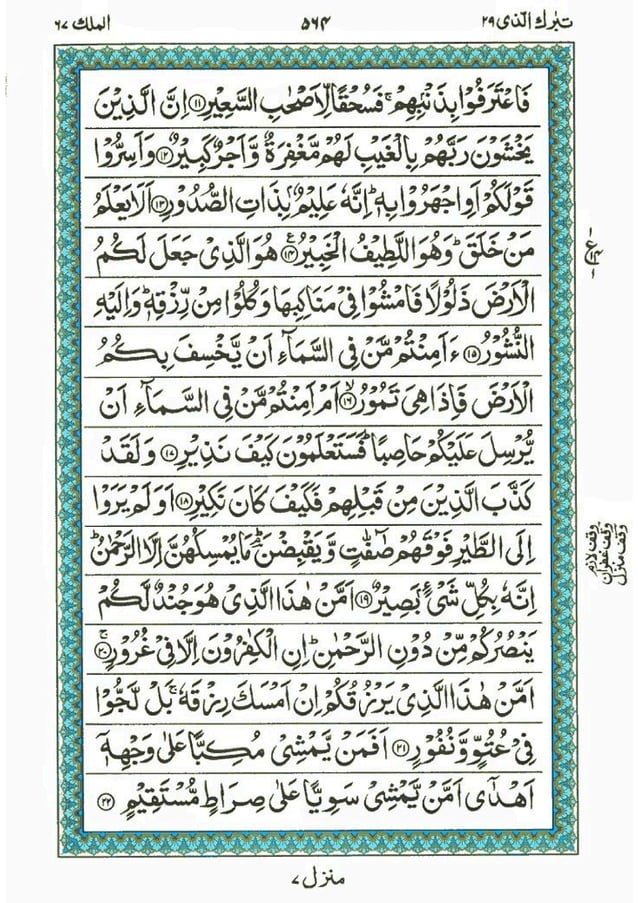 تبٰرك الذی ٢٩
٥٦٤
الملك ٦٧
فَاعْتَرَفُوْا بِذَنْۢبِهِمْ ۚ فَسُحْقًا لِّاَصْحٰبِ السَّعِيْرِ ۝١١ اِنَّ الَّذِيْنَ
يَخْشَوْنَ رَبَّهُمْ بِالْغَيْبِ لَهُمْ مَّغْفِرَةٌ وَّاَجْرٌ كَبِيْرٌ ۝١٢ وَاَسِرُّوْا
قَوْلَكُمْ اَوِ اجْهَرُوْا بِهٖ ؕ اِنَّهٗ عَلِيْمٌۢ بِذَاتِ الصُّدُوْرِ ۝١٣ اَلَا يَعْلَمُ
مَنْ خَلَقَ ؕ وَهُوَ اللَّطِيْفُ الْخَبِيْرُ ۝١٤ هُوَ الَّذِيْ جَعَلَ لَكُمُ
الْاَرْضَ ذَلُوْلًا فَامْشُوْا فِيْ مَنَاكِبِهَا وَكُلُوْا مِنْ رِّزْقِهٖ ؕ وَاِلَيْهِ
النُّشُوْرُ ۝١٥ ءَاَمِنْتُمْ مَّنْ فِي السَّمَآءِ اَنْ يَّخْسِفَ بِكُمُ
الْاَرْضَ فَاِذَا هِيَ تَمُوْرُ ۝١٦ۙ اَمْ اَمِنْتُمْ مَّنْ فِي السَّمَآءِ اَنْ
يُّرْسِلَ عَلَيْكُمْ حَاصِبًا ؕ فَسَتَعْلَمُوْنَ كَيْفَ نَذِيْرِ ۝١٧ وَلَقَدْ
كَذَّبَ الَّذِيْنَ مِنْ قَبْلِهِمْ فَكَيْفَ كَانَ نَكِيْرِ ۝١٨ اَوَلَمْ يَرَوْا
اِلَى الطَّيْرِ فَوْقَهُمْ صٰٓفّٰتٍ وَّيَقْبِضْنَ ؔۘؕ مَا يُمْسِكُهُنَّ اِلَّا الرَّحْمٰنُ ؕ
اِنَّهٗ بِكُلِّ شَيْءٍۭ بَصِيْرٌ ۝١٩ اَمَّنْ هٰذَا الَّذِيْ هُوَ جُنْدٌ لَّكُمْ
يَنْصُرُكُمْ مِّنْ دُوْنِ الرَّحْمٰنِ ؕ اِنِ الْكٰفِرُوْنَ اِلَّا فِيْ غُرُوْرٍ ۝٢٠ۚ
اَمَّنْ هٰذَا الَّذِيْ يَرْزُقُكُمْ اِنْ اَمْسَكَ رِزْقَهٗ ۚ بَلْ لَّجُّوْا
فِيْ عُتُوٍّ وَّنُفُوْرٍ ۝٢١ اَفَمَنْ يَّمْشِيْ مُكِبًّا عَلٰى وَجْهِهٖٓ
اَهْدٰٓى اَمَّنْ يَّمْشِيْ سَوِيًّا عَلٰى صِرَاطٍ مُّسْتَقِيْمٍ ۝٢٢
وقف لازم
وقف غفران
وقف منزل
منزل ٧